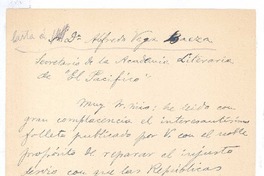 Carta a
Dn Alfredo Vega Baeza
Secretario de la Academia Literaria
de "El Pacífico"
Muy Sr. mío: he leído con
gran complacencia el interesantísimo
folleto publicado por V. con el noble
propósito de reparar el injusto
con que las Repúblicas